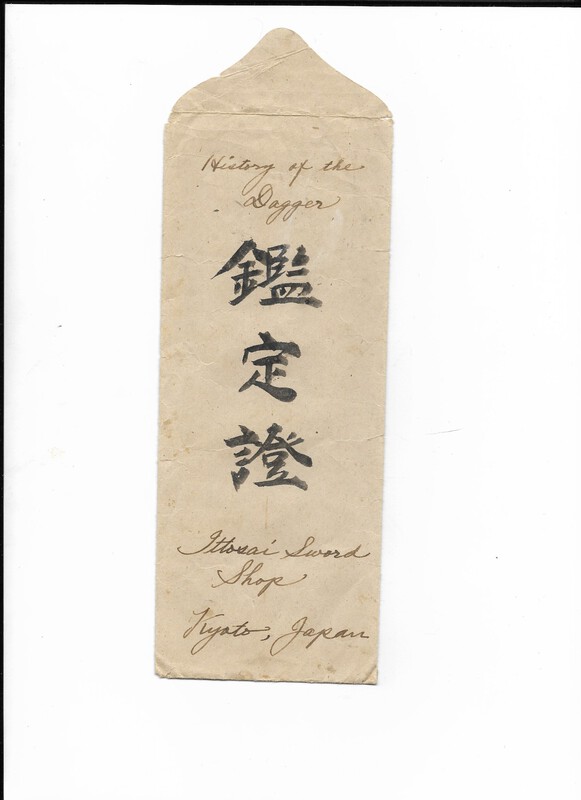 History of the
Dagger
鑑
定
證
Ittosai Sword
Shop
Kyoto, Japan